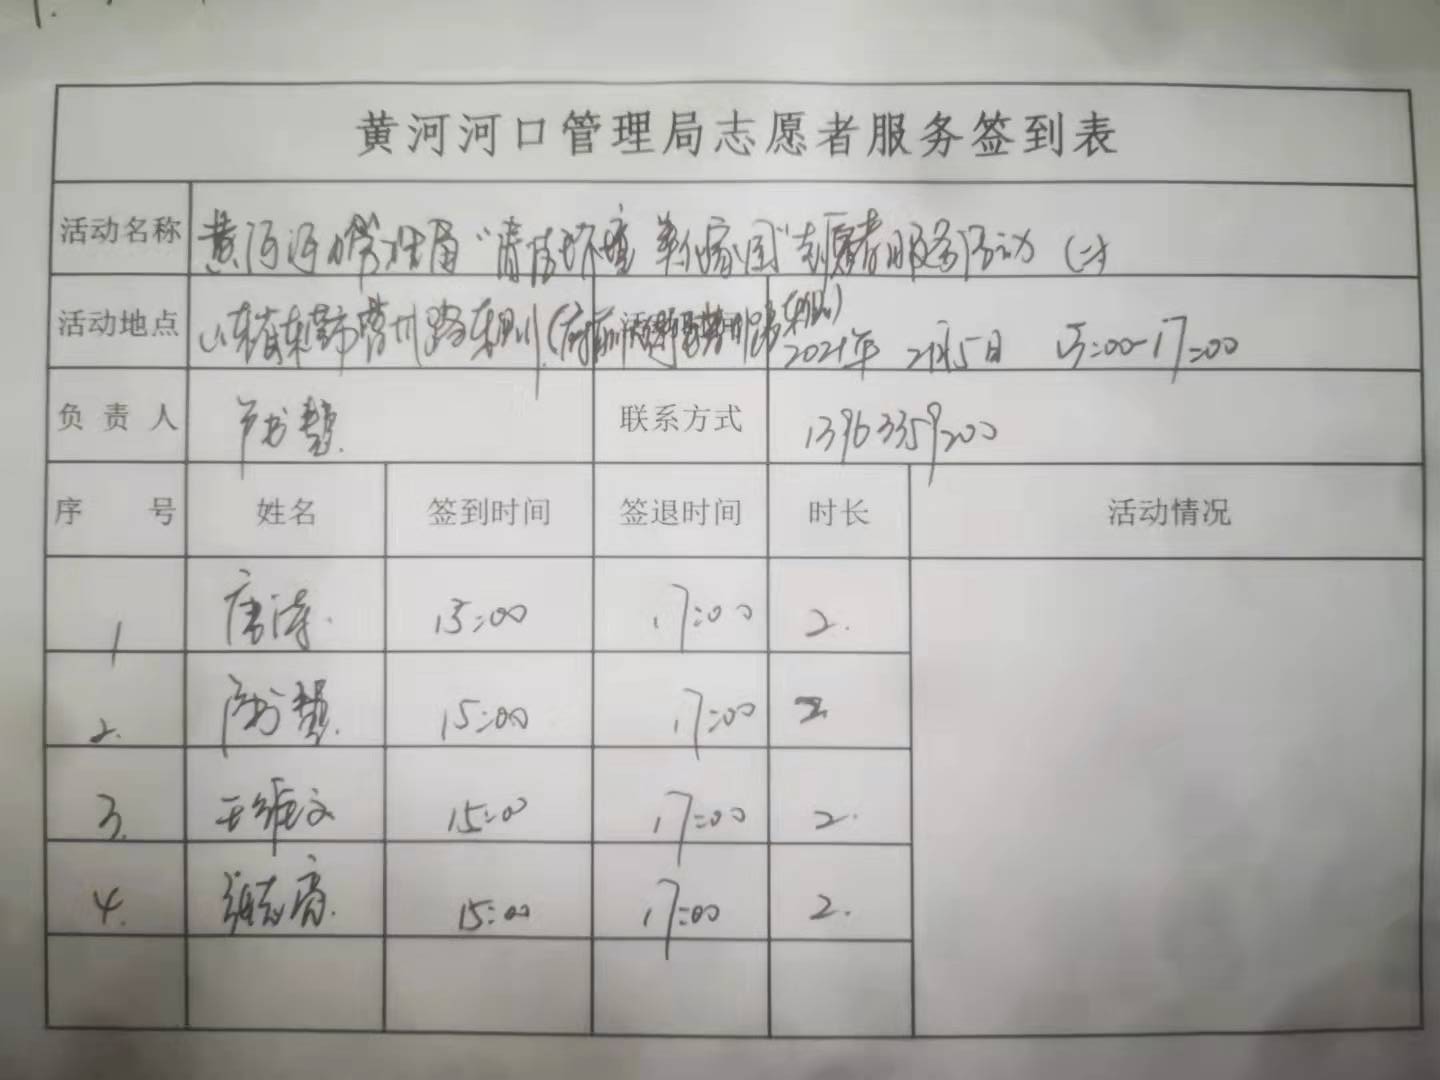 黄河河口管理局志愿者服务签到表
活动名称 黄河河口管理局“清洁环境 美化家园”志愿者服务活动（二）
活动地点 山东省东营市营州路东侧 2021年2月5日 15:00-17:00
负责人 联系方式 13963359200
序号 姓名 签到时间 签退时间 时长 活动情况
1 唐涛 15:00 17:00 2.
2. 15:00 17:00 2
3. 王维文 15:00 17:00 2.
4. 张志高 15:00 17:00 2.